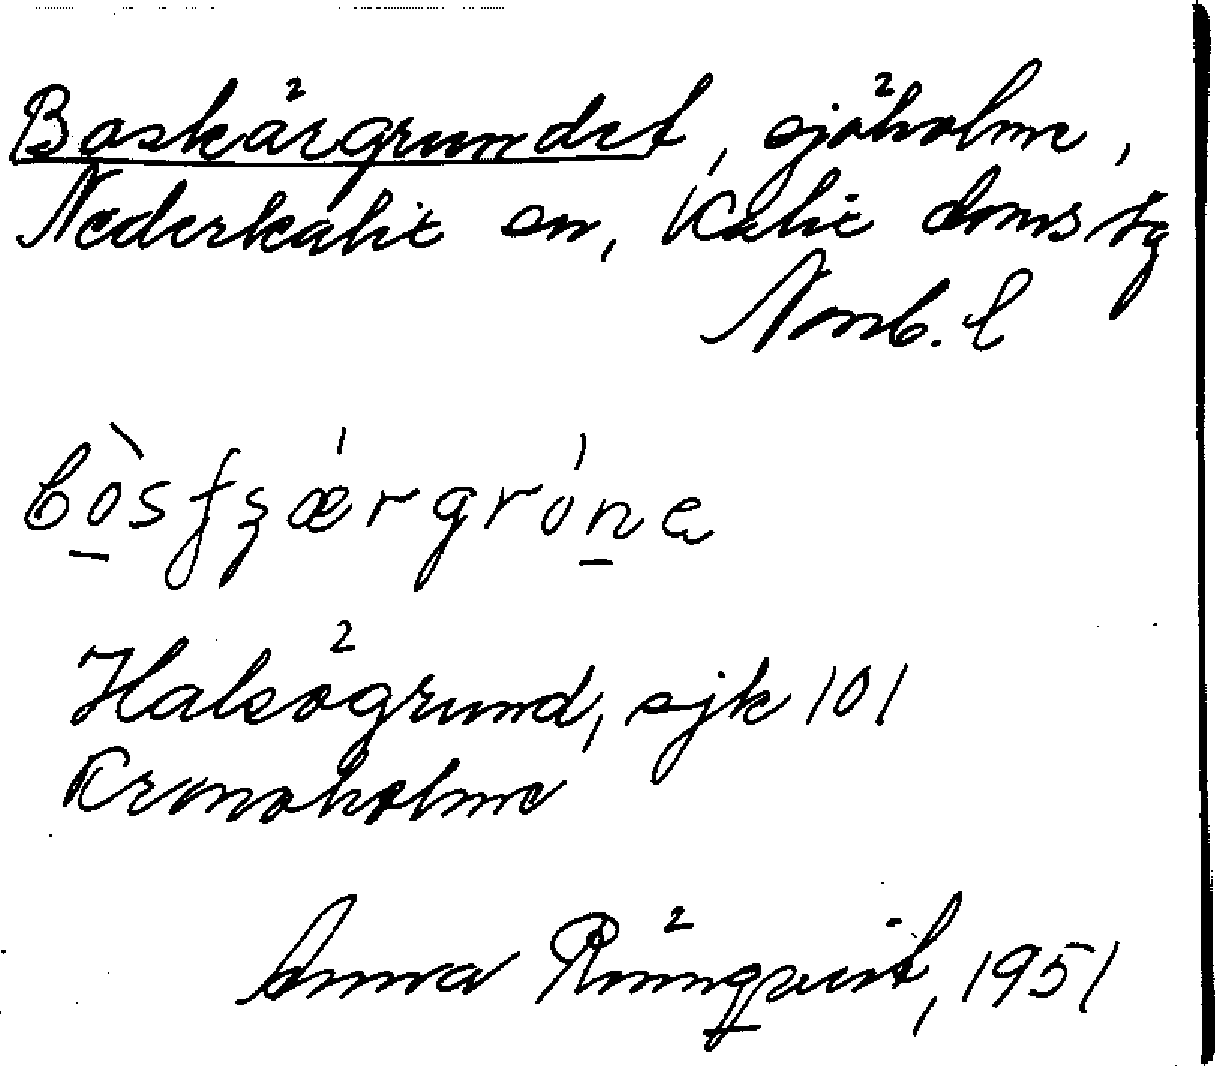 Boskärgrundet, sjöholme,
Nederkalix sn, Kalix domsag
Norrb. l
bòsfʒærgróne
Halsögrund, sjk 101
Kronoholme
Anna Rönnqvist, 1951